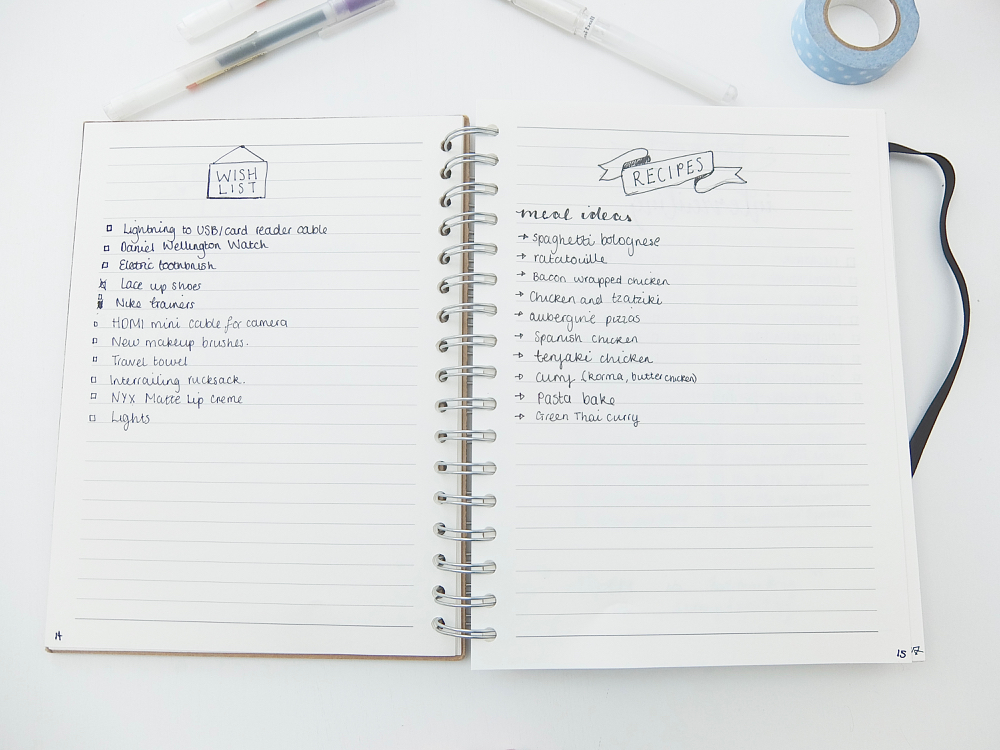 WISH
LIST
Lightning to USB/card reader cable
Daniel Wellington Watch
Electric toothbrush
Lace up shoes
Nike trainers
HDMI mini cable for camera
New makeup brushes.
Travel towel
Interrailing rucksack.
NYX Matte Lip creme
Lights
14
RECIPES
meal ideas
→ spaghetti bolognese
→ ratatouille
→ Bacon wrapped chicken
→ Chicken and tzatziki
→ aubergine pizzas
→ Spanish chicken
→ teriyaki chicken
→ Curry (korma, butter chicken)
→ Pasta bake
→ Green Thai curry
15